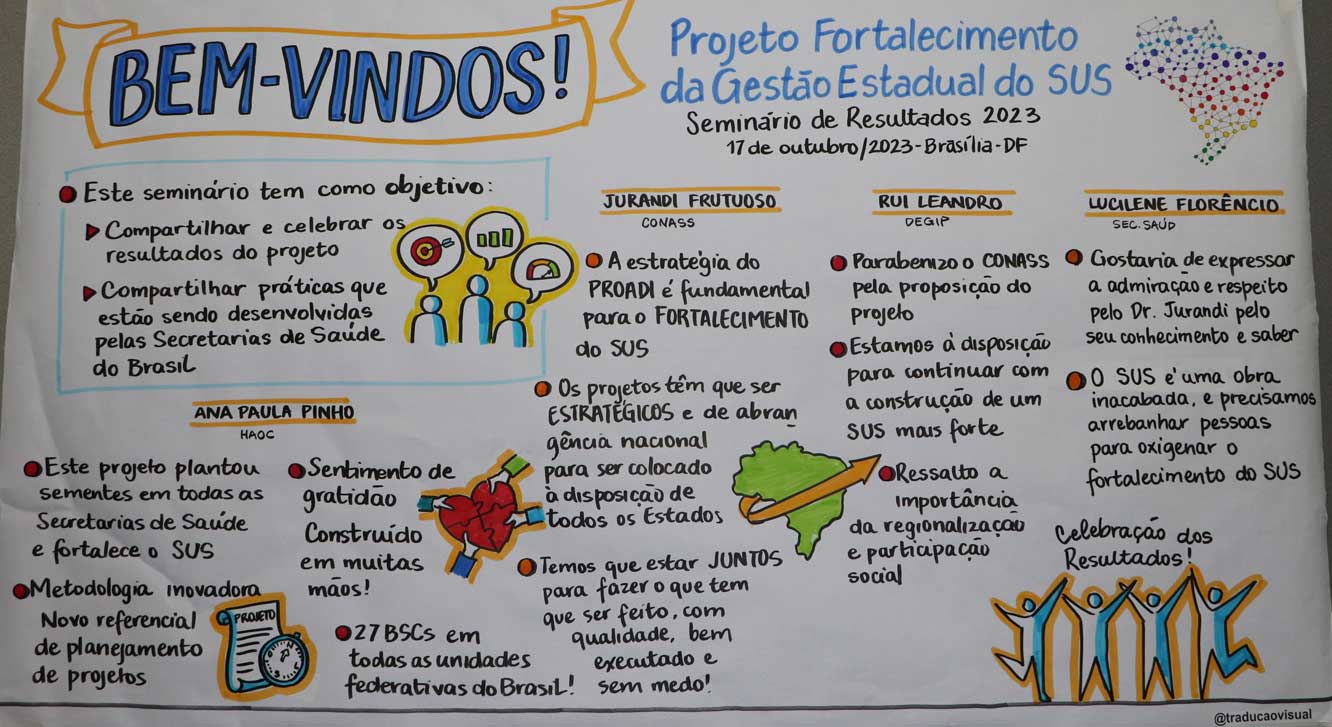 BEM-VINDOS!
Projeto Fortalecimento
da Gestão Estadual do SUS
Seminário de Resultados 2023
17 de outubro/2023-Brasília-DF
Este seminário tem como objetivo:
Compartilhar e celebrar os
resultados do projeto
Compartilhar práticas que
estão sendo desenvolvidas
pelas Secretarias de Saúde
do Brasil
ANA PAULA PINHO
HAOC
Este projeto plantou
sementes em todas as
Secretarias de Saúde
e fortalece o SUS
Metodologia inovadora
Novo referencial
de planejamento
de projetos
PROJETO
N
Sentimento de
gratidão
Construído
em muitas
mãos!
27 BSCs em
todas as unidades
federativas do Brasil!
JURANDI FRUTUOSO
CONASS
A estratégia do
PROADI é fundamental
para o FORTALECIMENTO
do SUS
Os projetos têm que ser
ESTRATÉGICOS e de abran
gência nacional
para ser colocado
à disposição de
todos os Estados
Temos que estar JUNTOS
para fazer o que tem
que ser feito, com
qualidade, bem
executado e
sem medo!
RUI LEANDRO
DEGIP
Parabenizo o CONASS
pela proposição do
projeto
Estamos à disposição
para continuar com
a construção de um
SUS mais forte
Ressalto a
importância
da regionalização
e participação
social
LUCILENE FLORÊNCIO
SEC. SAÚD
Gostaria de expressar
a admiração e respeito
pelo Dr. Jurandi pelo
seu conhecimento e saber
O SUS é uma obra
inacabada, e precisamos
arrebanhar pessoas
para oxigenar o
fortalecimento do SUS
Celebração dos
Resultados!
@traducaovisual